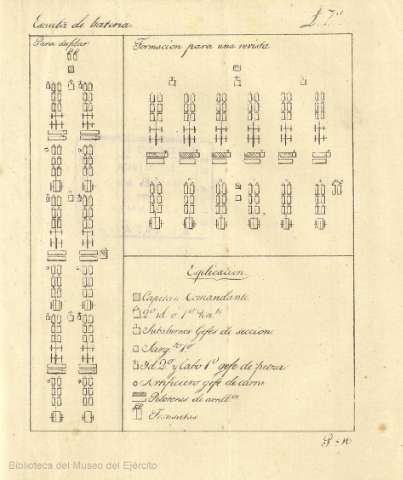 Escuela de batería
L. 7.ª
Para desfilar
Formacion para una revista
Explicacion
Capitan Comandante
2º id. o 1º
Subalternos Gefes de seccion
Sarg.to 1º
Id. 2º y Cabo 1º gefe de pieza
Artificiero gefe de carro
Pelotones de
Trompetas
Biblioteca del Museo del Ejército